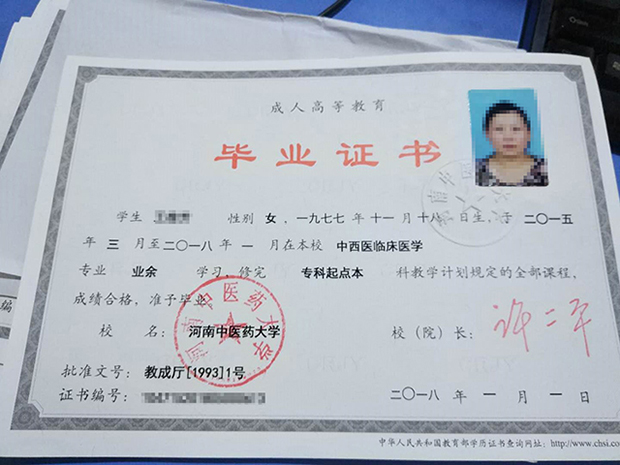 成人高等教育
毕业证书
学生 性别 女，一九七七 年 十一 月 十八 日生，于 二〇一五
年 三 月至二〇一八 年 一 月在本校 中西医临床医学
专业 业余 学习，修完 专科起点本 科教学计划规定的全部课程，
成绩合格，准予毕业。
校 名：河南中医药大学 校（院）长：许二平
批准文号：教成厅[1993]1号
证书编号： 二〇一八 年 一 月 一 日
中华人民共和国教育部学历证书查询网址：http://www.chsi.co
河南中医药大学